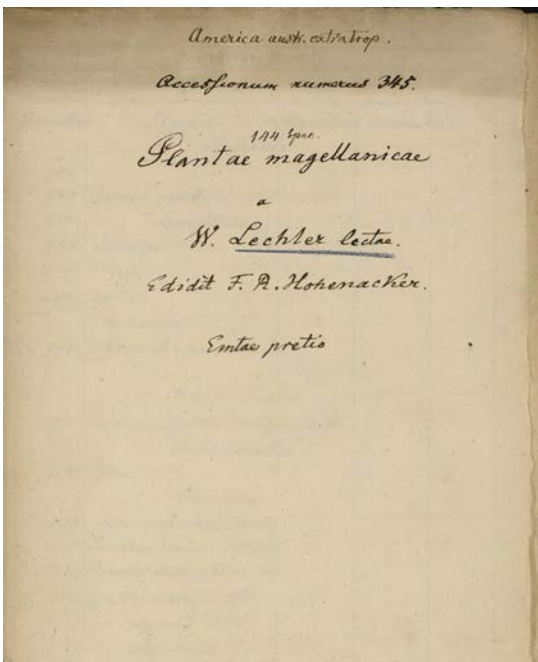 America austr. extratrop.
Accessionum numerus 345.
144 Spec.
Plantae magellanicae
a
W. Lechler lectae.
Edidit F. R. Hohenacker.
Emtae pretio